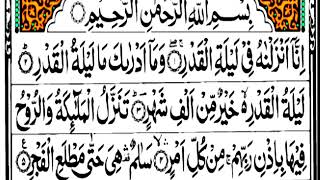 بِسْمِ اللّٰهِ الرَّحْمٰنِ الرَّحِيْمِ
اِنَّاۤ اَنْزَلْنٰهُ فِيْ لَيْلَةِ الْقَدْرِ ۝۱ وَمَاۤ اَدْرٰىكَ مَا لَيْلَةُ الْقَدْرِ ۝۲
لَيْلَةُ الْقَدْرِ ۙ خَيْرٌ مِّنْ اَلْفِ شَهْرٍ ۝۳ تَنَزَّلُ الْمَلٰٓئِكَةُ وَالرُّوْحُ
فِيْهَا بِاِذْنِ رَبِّهِمْ ۚ مِنْ كُلِّ اَمْرٍ ۝۴ سَلٰمٌ ۛ هِيَ حَتّٰى مَطْلَعِ الْفَجْرِ ۝۵